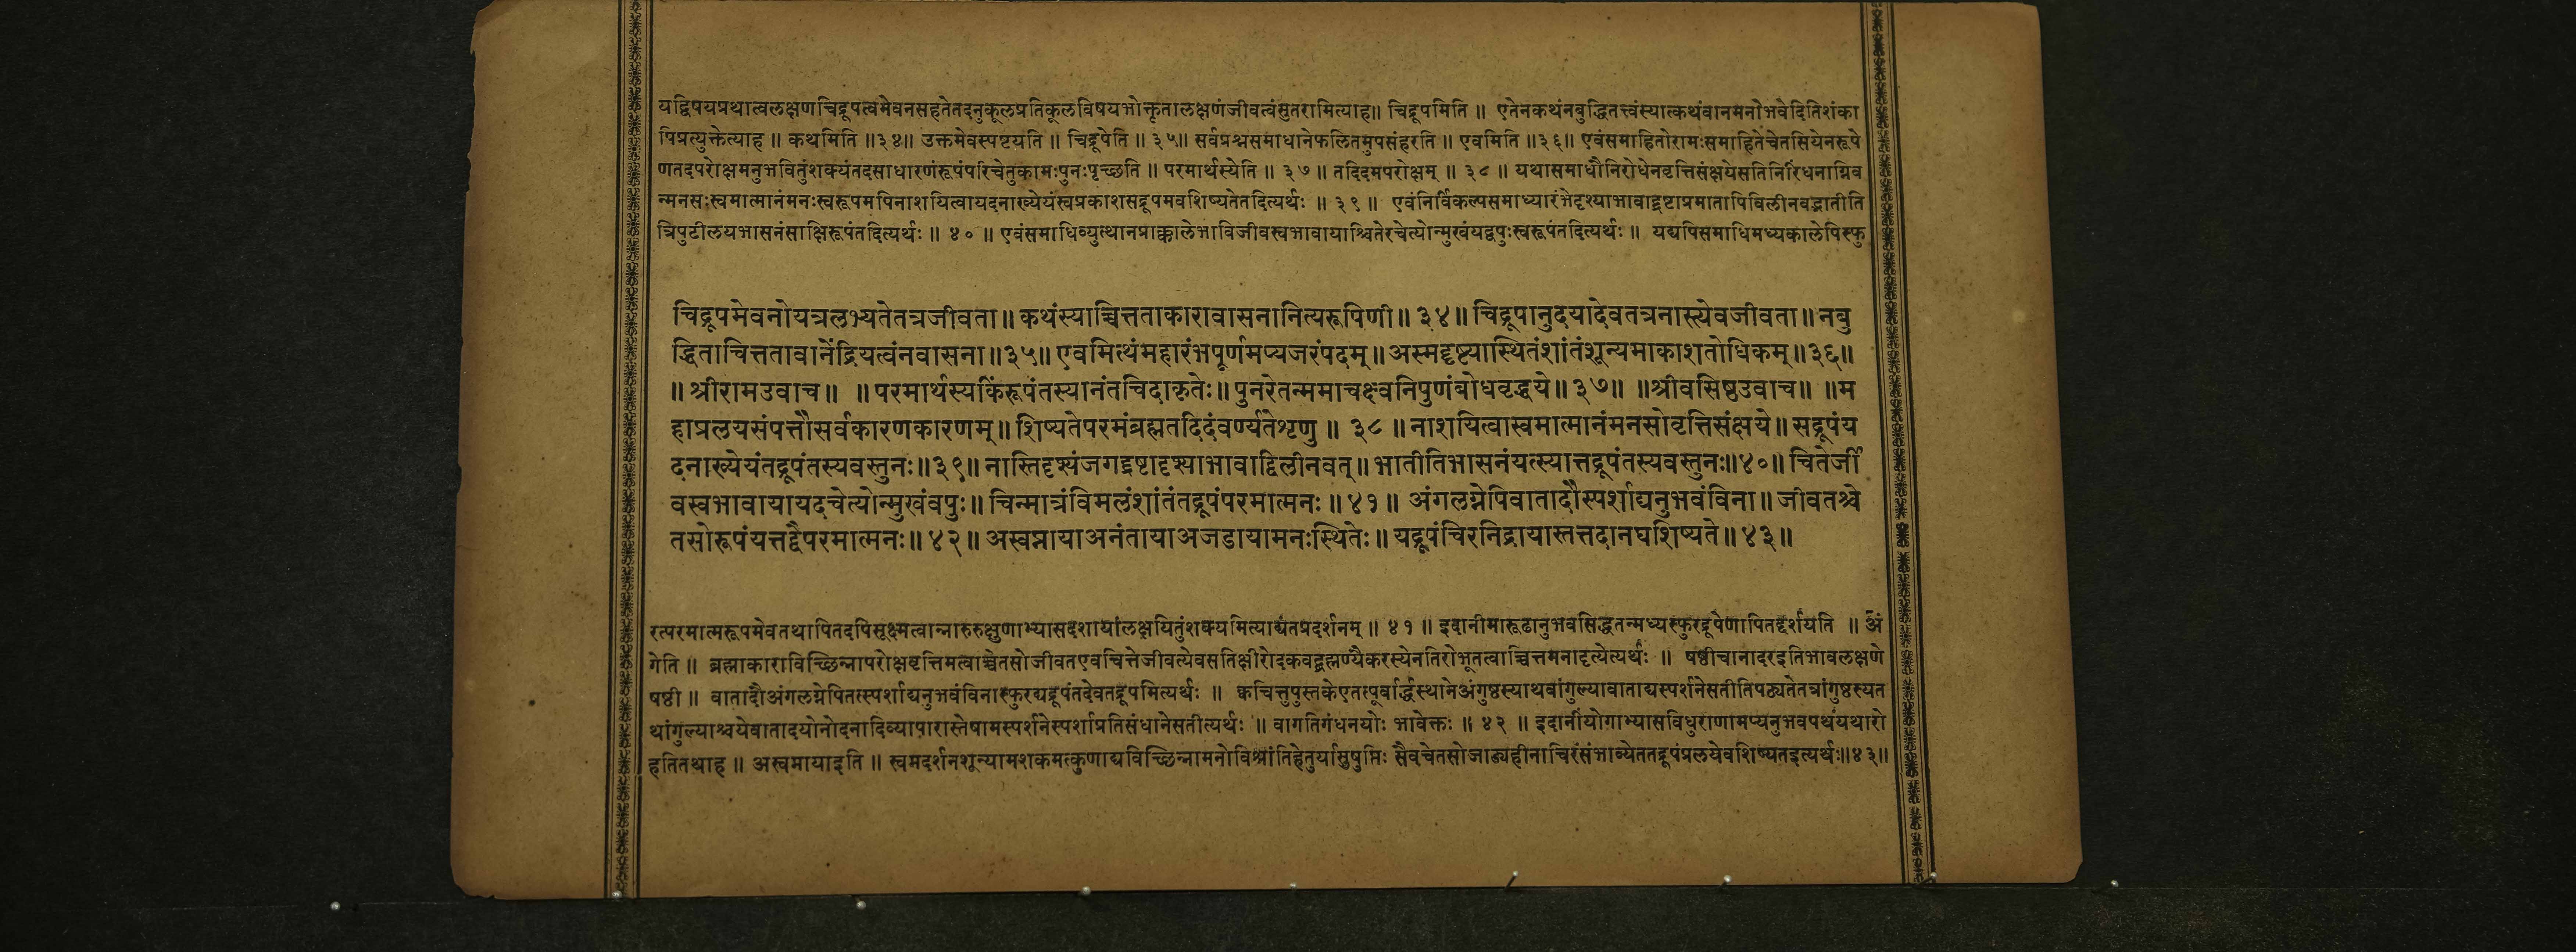 यद्विषयप्रथात्वलक्षणचिद्रूपत्वमेवनसहतेतदनुकूलप्रतिकूलविषयभोक्तृतालक्षणंजीवत्वंसुतरामित्याह॥ चिद्रूपमिति ॥ एतेनकथंनबुद्धितत्त्वंस्यात्कथंवानमनोभवेदितिशंका
पिप्रत्युक्तेत्याह ॥ कथमिति ॥३४॥ उक्तमेवस्पष्टयति ॥ चिद्रूपेति ॥ ३५॥ सर्वप्रश्नसमाधानेफलितमुपसंहरति ॥ एवमिति ॥३६॥ एवंसमाहितोरामःसमाहितेचेतसियेनरूपे
णतदपरोक्षमनुभवितुंशक्यंतदसाधारणंरूपंपरिचेतुकामःपुनःपृच्छति ॥ परमार्थस्येति ॥ ३७ ॥ तदिदमपरोक्षम् ॥ ३८ ॥ यथासमाधौनिरोधेनवृत्तिसंक्षयेसतिनिरिंधनाग्निव
न्मनसःस्वमात्मानंमनःस्वरूपमपिनाशयित्वायदनाख्येयंस्वप्रकाशसद्रूपमवशिष्यतेतदित्यर्थः ॥ ३९ ॥ एवंनिर्विकल्पसमाध्यारंभेदृश्याभावाद्द्रष्टाप्रमातापिविलीनवद्भातीति
त्रिपुटीलयभासनंसाक्षिरूपंतदित्यर्थः ॥ ४० ॥ एवंसमाधिव्युत्थानप्राक्कालेभाविजीवस्वभावायाश्चितेरचेत्योन्मुखंयद्वपुःस्वरूपंतदित्यर्थः ॥ यद्यपिसमाधिमध्यकालेपिस्फु
चिद्रूपमेवनोयत्रलभ्यतेतत्रजीवता॥ कथंस्याच्चित्तताकारावासनानित्यरूपिणी॥ ३४॥ चिद्रूपानुदयादेवतत्रनास्त्येवजीवता॥ नबु
द्धिताचित्ततावानेंद्रियत्वंनवासना॥३५॥ एवमित्थंमहारंभपूर्णमप्यजरंपदम्॥ अस्मद्दृष्ट्यास्थितंशांतंशून्यमाकाशतोधिकम्॥३६॥
॥ श्रीरामउवाच॥ ॥ परमार्थस्यकिंरूपंतस्यानंतचिदाकृतेः॥ पुनरेतन्ममाचक्ष्वनिपुणंबोधवृद्धये॥ ३७॥ ॥श्रीवसिष्ठउवाच॥ ॥म
हाप्रलयसंपत्तौसर्वकारणकारणम्॥ शिष्यतेपरमंब्रह्मतदिदंवर्ण्यतेशृणु ॥ ३८ ॥ नाशयित्वास्वमात्मानंमनसोवृत्तिसंक्षये॥ सद्रूपंय
दनाख्येयंतद्रूपंतस्यवस्तुनः॥३९॥ नास्तिदृश्यंजगद्द्रष्टादृश्याभावाद्विलीनवत्॥ भातीतिभासनंयत्स्यात्तद्रूपंतस्यवस्तुनः॥४०॥ चितेर्जी
वस्वभावायायदचेत्योन्मुखंवपुः॥ चिन्मात्रंविमलंशांतंतद्रूपंपरमात्मनः ॥ ४१ ॥ अंगलग्नेपिवातादौस्पर्शाद्यनुभवंविना॥ जीवतश्चे
तसोरूपंयत्तद्वैपरमात्मनः॥ ४२॥ अस्वप्नायाअनंतायाअजडायामनःस्थितेः॥ यद्रूपंचिरनिद्रायास्तत्तदानघशिष्यते॥ ४३॥
रत्परमात्मरूपमेवतथापितदपिसूक्ष्मत्वान्नारुरुक्षुणाभ्यासदशायांलक्षयितुंशक्यमित्याद्यंतप्रदर्शनम् ॥ ४१ ॥ इदानीमारूढानुभवसिद्धतन्मध्यस्फुरद्रूपेणापितद्दर्शयति ॥ अं
गेति ॥ ब्रह्माकाराविच्छिन्नापरोक्षवृत्तिमत्वाच्चेतसोजीवतएवचित्तेजीवत्येवसतिक्षीरोदकवद्ब्रह्मण्यैकरस्येनतिरोभूतत्वाच्चित्तमनादृत्येत्यर्थः ॥ षष्ठीचानादरइतिभावलक्षणे
षष्ठी ॥ वातादौअंगलग्नेपितत्स्पर्शाद्यनुभवंविनास्फुरद्यद्रूपंतदेवतद्रूपमित्यर्थः ॥ क्वचित्तुपुस्तकेएतत्पूर्वार्द्धस्थानेअंगुष्ठस्याथवांगुल्यावाताद्यस्पर्शनेसतीतिपठ्यतेतत्रांगुष्ठस्यत
थांगुल्याश्चयेवातादयोनोदनादिव्यापारास्तेषामस्पर्शनेस्पर्शाप्रतिसंधानेसतीत्यर्थः ॥ वागतिगंधनयोः भावेक्तः ॥ ४२ ॥ इदानींयोगाभ्यासविधुराणामप्यनुभवपथंयथारो
हतितथाह ॥ अस्वप्नायाइति ॥ स्वप्नदर्शनशून्यामशकमत्कुणाद्यविच्छिन्नामनोविश्रांतिहेतुर्यासुषुप्तिः सैवचेतसोजाड्यहीनाचिरंसंभाव्येततद्रूपंप्रलयेवशिष्यतइत्यर्थः॥४३॥